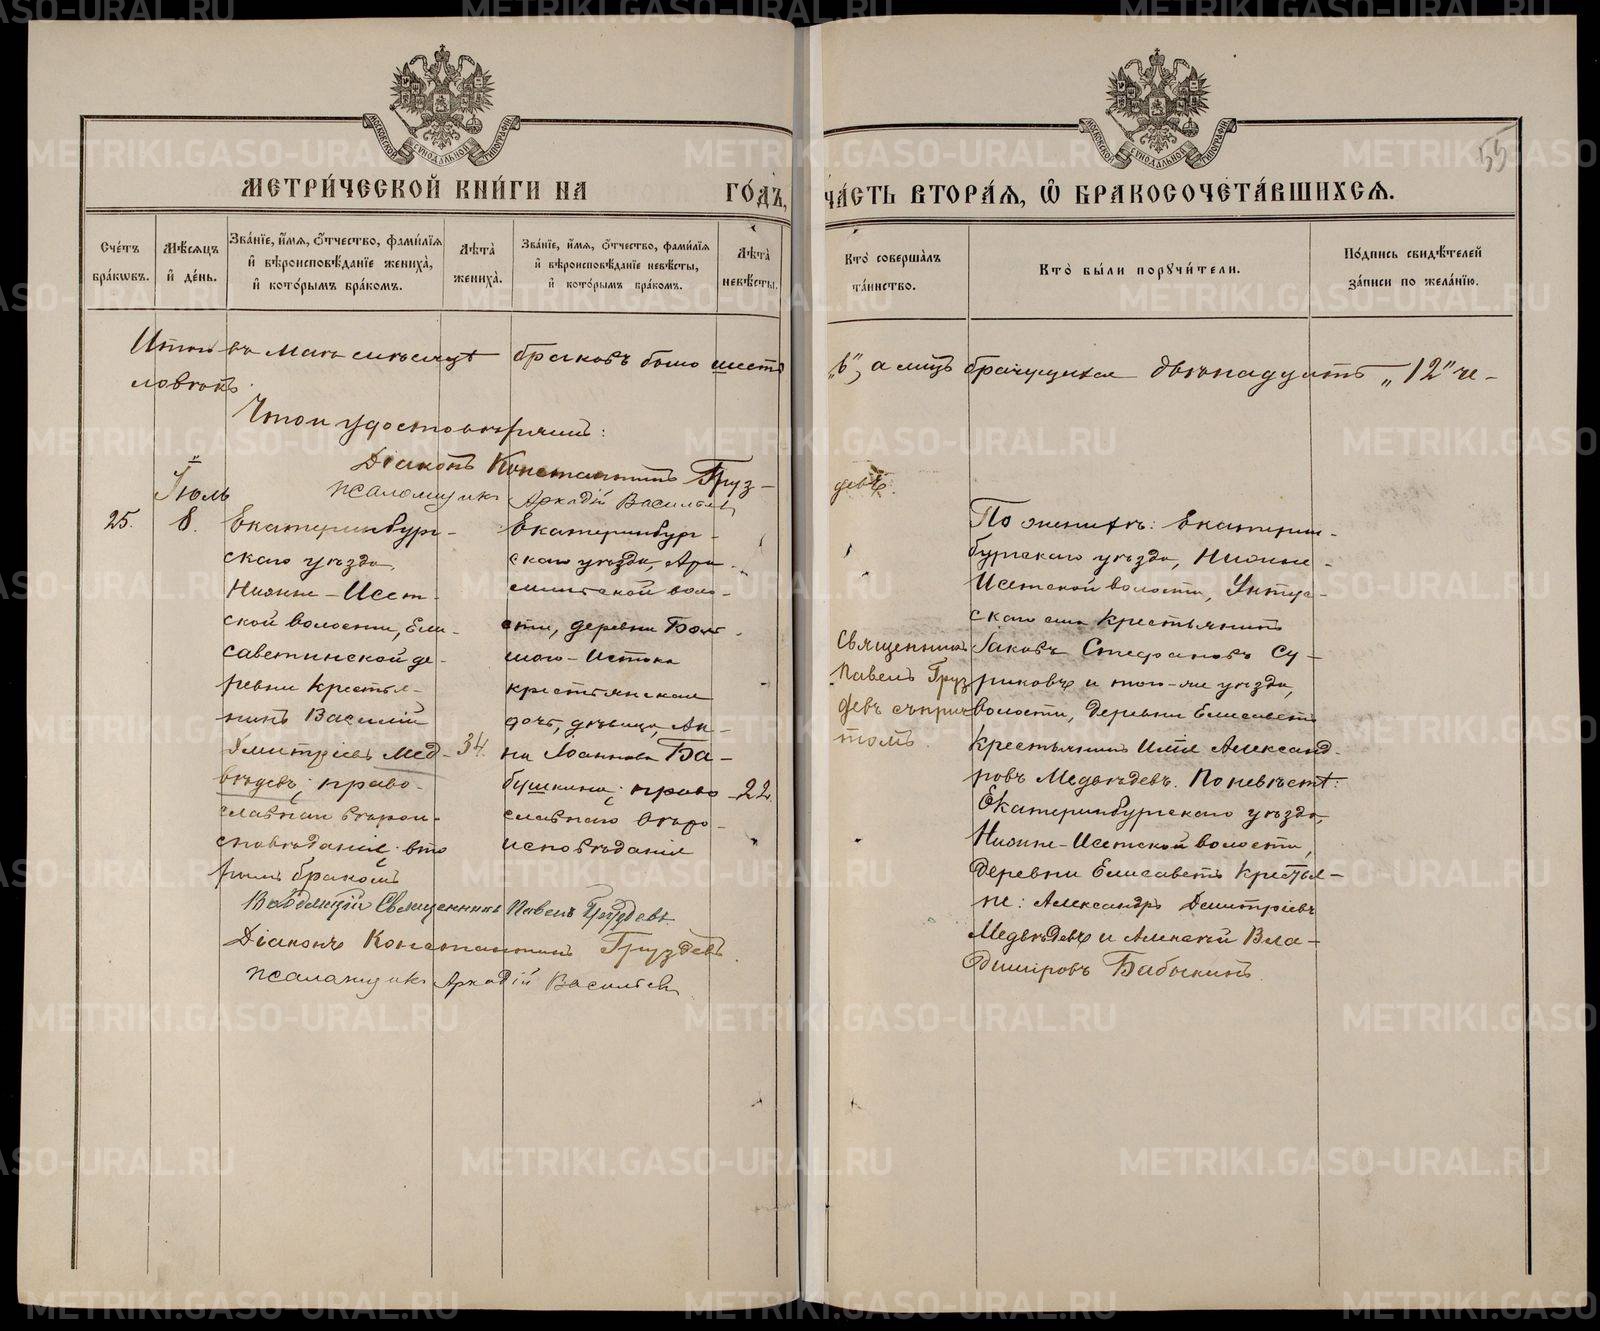 МЕТРИ́ЧЕСКОЙ КНИ́ГИ НА ГО́ДЪ, ЧА́СТЬ ВТОРА́Я, Ѡ БРАКОСОЧЕТА́ВШИХСЯ.
55
МОСКОВСКОЙ СѴНОДАЛЬНОЙ ТИПОГРАФІИ
МОСКОВСКОЙ СѴНОДАЛЬНОЙ ТИПОГРАФІИ
Сче́тъ бра́кѡвъ.
Мѣ́сяцъ и҆ де́нь.
Зва́нїе, и҆́мя, ѻ҆́тчество, фами́лїя и҆ вѣроисповѣ́данїе жениха̀, и҆ кото́рымъ бра́комъ.
Лѣ́та жениха̀.
Зва́нїе, и҆́мя, ѻ҆́тчество, фами́лїя и҆ вѣроисповѣ́данїе невѣ́сты, и҆ кото́рымъ бра́комъ.
Лѣ́та невѣ́сты.
Кто̀ соверша́лъ та́инство.
Кто̀ бы́ли порꙋчи́тели.
По́дпись свидѣ́телей за́писи по жела́нїю.
Итого въ Маѣ мѣсяцѣ браковъ было шесть „6“, а лицъ брачущихся двѣнадцать „12“ че-
ловѣкъ.
Въ томъ удостовѣряемъ:
Діаконъ Константинъ Груз-
девъ.
Псаломщикъ Аркадій Васильевъ
Іюль
25.
8.
Екатеринбург-
скаго уѣзда,
Нижне-Исет-
ской волости, Ели-
саветинской де-
ревни крестья-
нинъ Василій
Дмитріевъ Мед-
вѣдевъ; право-
славнаго вѣрои-
сповѣданія; вто
рымъ бракомъ
34.
Екатеринбург-
скаго уѣзда, Ара-
мильской воло-
сти, деревни Боль-
шого-Истока
крестьянская
дочь, дѣвица, Ан-
на Іоаннова Ба-
бушкина; право
славнаго вѣро-
исповѣданія
22.
Священникъ
Павелъ Груз
девъ съ прич
томъ.
По женихѣ: Екатерин-
бургскаго уѣзда, Нижне-
Исетской волости, Уктус-
скаго села крестьянинъ
Іаковъ Стефановъ Су-
риковъ и того-же уѣзда,
волости, деревни Елисаветъ
крестьянинъ Илія Александ-
ровъ Медвѣдевъ. По невѣстѣ:
Екатеринбургскаго уѣзда,
Нижне-Исетской волости,
деревни Елисаветъ крестья-
не: Александръ Димитріевъ
Медвѣдевъ и Алексѣй Вла-
диміровъ Бабыкинъ.
Священникъ Павелъ Груздевъ.
Діаконъ Константинъ Груздевъ.
Псаломщикъ Аркадій Васильевъ
METRIKI.GASO-URAL.RU